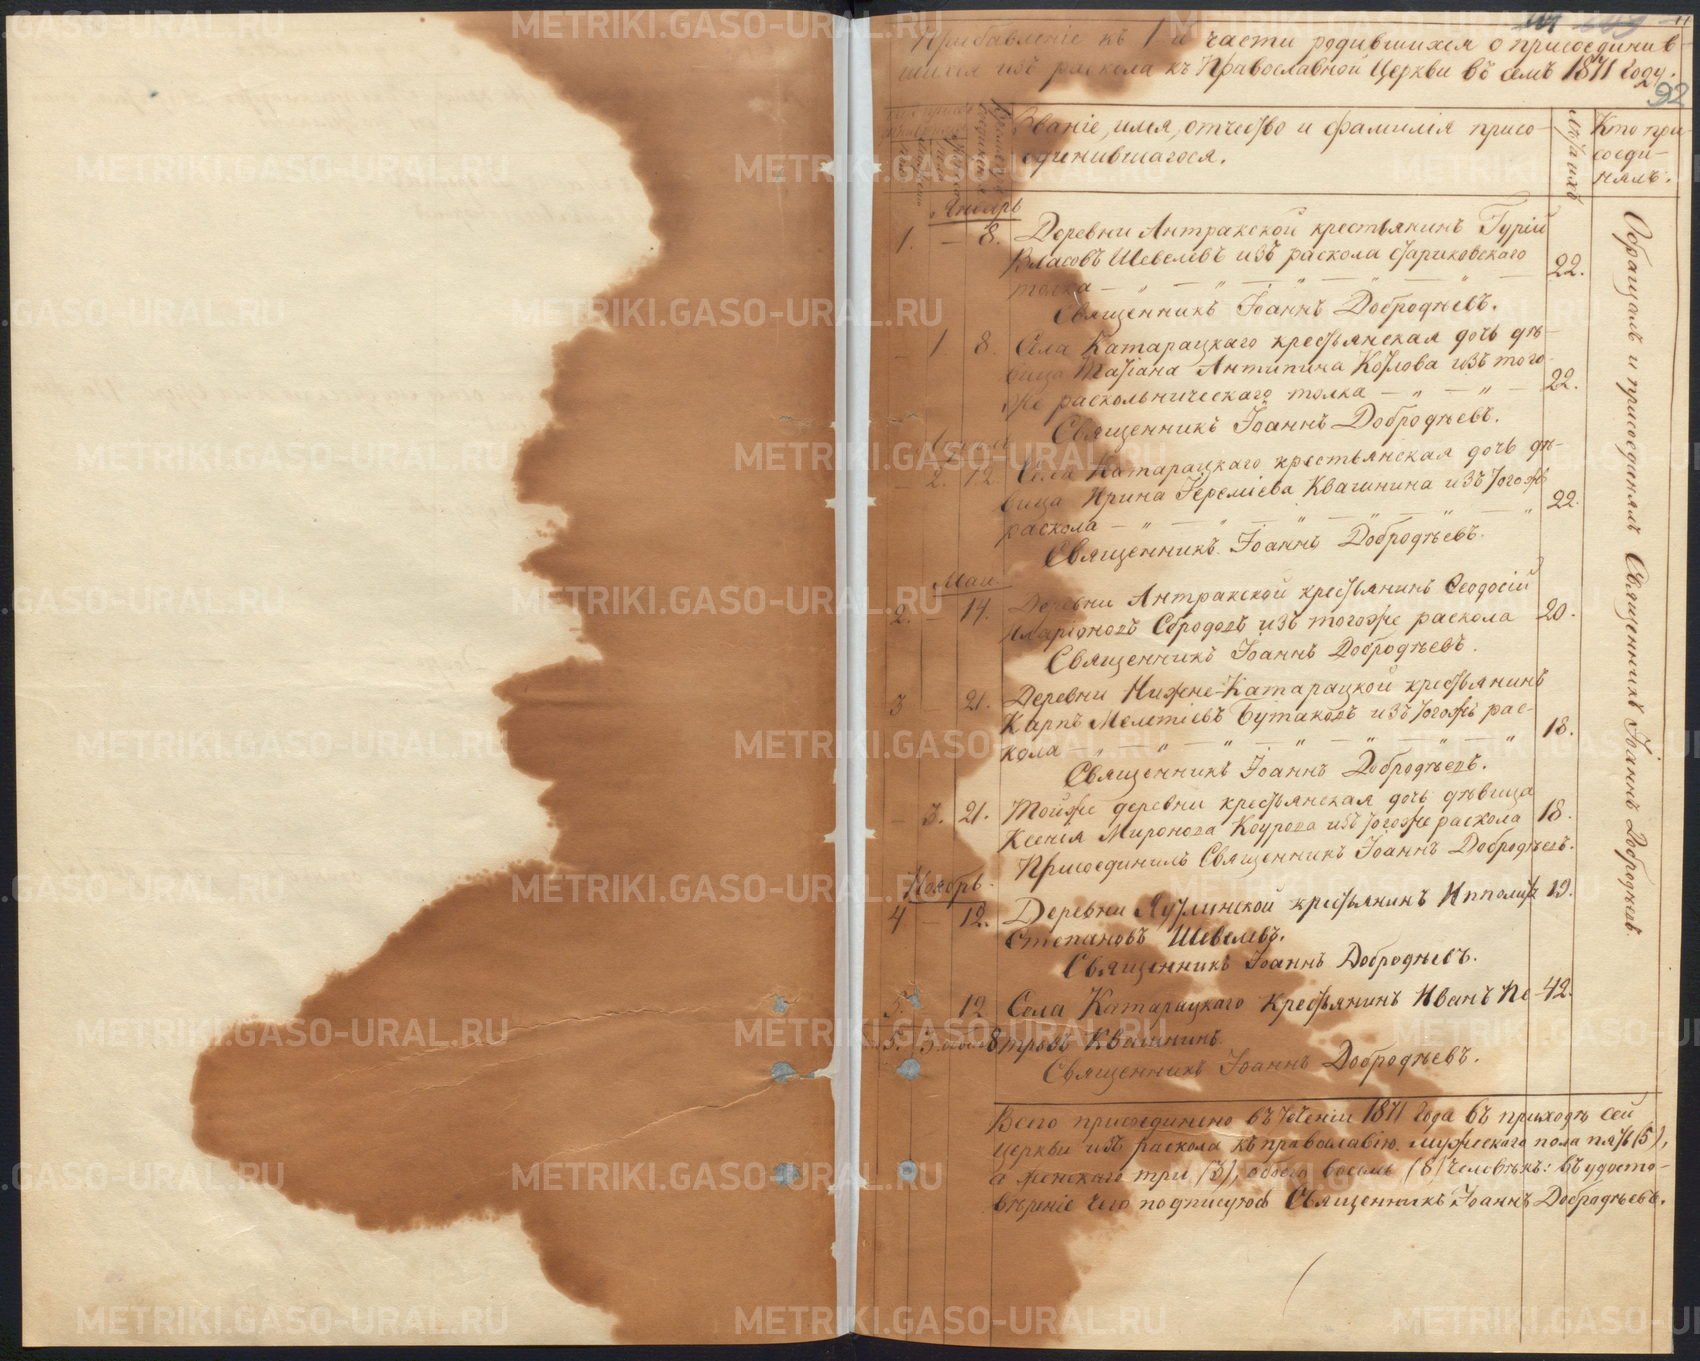 Прибавленіе къ 1-й части родившихся о присоединив-
шихся изъ раскола къ Православной Церкви въ семъ 1871 году.
92
Званіе, имя, отчество и фамилія присо-
единившагося.
Лѣта ихъ
Кто при-
соеди-
нялъ.
Январь
1. — 8. Деревни Антракской крестьянинъ Гурій
Власовъ Шевелевъ изъ раскола стариковскаго 22.
толка — „ — „ — „ — „ — „ —
Священникъ Іоаннъ Добродѣевъ.
— 1. 8. Села Катарацкаго крестьянская дочь дѣ-
вица Татіана Антипина Козлова изъ того- 22.
же раскольническаго толка — „ — „ —
Священникъ Іоаннъ Добродѣевъ.
— 2. 12. Села Катарацкаго крестьянская дочь дѣ-
вица Ирина Іереміева Квашнина изъ тогожъ 22.
раскола — „ — „ — „ — „ — „ — „
Священникъ Іоаннъ Добродѣевъ.
Маи
2. — 14. Деревни Антракской крестьянинъ Ѳеодосій
Иларіоновъ Сбродовъ изъ тогоже раскола 20.
Священникъ Іоаннъ Добродѣевъ.
3 — 21. Деревни Нижне-Катарацкой крестьянинъ
Карпъ Мелетіевъ Бутаковъ изъ тогожъ рас- 18.
кола „ — „ — „ — „ — „ — „ — „
Священникъ Іоаннъ Добродѣевъ.
— 3. 21. Тойже деревни крестьянская дочь дѣвица
Ксенія Миронова Коурова изъ тогоже раскола 18.
Присоединилъ Священникъ Іоаннъ Добродѣевъ.
Ноябрь
4 — 12. Деревни Яутлинской крестьянинъ Ипполитъ 19.
Степановъ Шевелевъ.
Священникъ Іоаннъ Добродѣевъ.
5. 12 Села Катарацкаго Крестьянинъ Иванъ Пе- 42.
5. 3. обоего 8 тровъ Квашнинъ.
Священникъ Іоаннъ Добродѣевъ.
Обращалъ и присоединялъ Священникъ Іоаннъ Добродѣевъ.
Всего присоединено въ теченіи 1871 года въ приходѣ сей
церкви изъ раскола къ православію мужескаго пола пять (5),
а женскаго три (3), обоего восемь (8) человѣкъ: въ удосто-
вѣреніе чего подписуюсь Священникъ Іоаннъ Добродѣевъ.